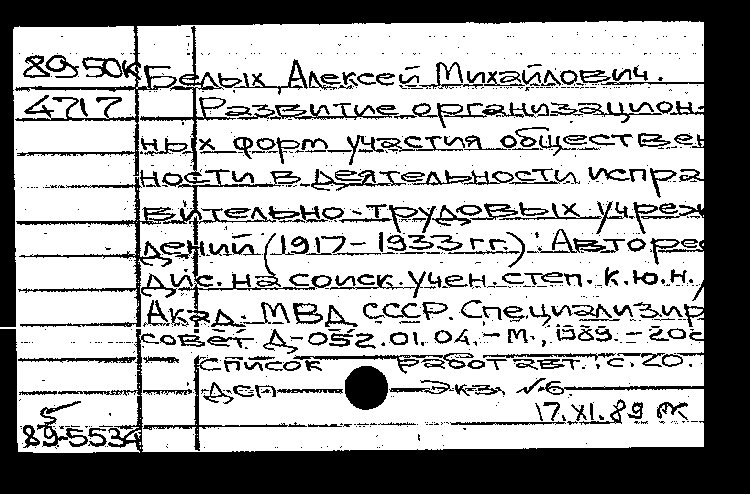 89-50к Белых, Алексей Михайлович.
4717 Развитие организацион-
ных форм участия обществен
ности в деятельности испра
вительно-трудовых учреж
дений (1917-1933 гг.): Авторе
дис. на соиск. учен. степ. к.ю.н./
Акад. МВД СССР. Специализир
совет Д-052.01.04.-М., 1989.-20с
список работ авт.: с.20.
ДСП Экз. №6
17.XI.89
89-5534